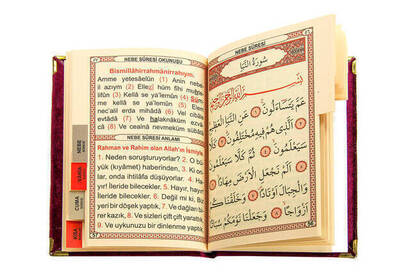 NEBE SÛRESİ OKUNUŞU
Bismillâhirrahmânirrahıym.
Amme yetesâelûn (1) Anin nebe
il azıym (2) Ellezî hüm fîhi
(3) Kellâ se ya'lemûn (4) Sümme
kellâ se ya'lemûn (5) Elem
nec'alil erda mihâdâ (6) Vel cibâle
evtâdâ (7) Ve halaknâküm ezvâcâ
(8) Ve cealnâ nevmeküm sübâtâ
NEBE SÛRESİ ANLAMI
Rahman ve Rahim olan Allah'ın İsmiyle
1. Neden soruşturuyorlar? 2. O bü
yük (kıyâmet) haberinden, 3. Ki on
lar, onda ihtilâfa düşüyorlar. 4. Hayır,
ileride bilecekler. 5. Hayır, hayır!
İleride bilecekler. 6. Değil mi ki, Biz
yeri bir döşek yaptık, 7. Ve dağları
birer kazık, 8. Ve sizleri çift çift yarattık,
9. Ve uykunuzu bir dinlenme yaptık
NEBE
CUMA
KISA
NEBE SÛRESİ
سُورَةُ النَّبَأِ
بِسْمِ اللَّهِ الرَّحْمَنِ الرَّحِيمِ
عَمَّ يَتَسَاءَلُونَ ﴿١﴾ عَنِ النَّبَإِ الْعَظِيمِ
﴿٢﴾ الَّذِي هُمْ فِيهِ مُخْتَلِفُونَ ﴿٣﴾ كَلَّا
سَيَعْلَمُونَ ﴿٤﴾ ثُمَّ كَلَّا سَيَعْلَمُونَ
﴿٥﴾ أَلَمْ نَجْعَلِ الْأَرْضَ مِهَادًا ﴿٦﴾
وَالْجِبَالَ أَوْتَادًا ﴿٧﴾ وَخَلَقْنَاكُمْ
أَزْوَاجًا ﴿٨﴾ وَجَعَلْنَا نَوْمَكُمْ